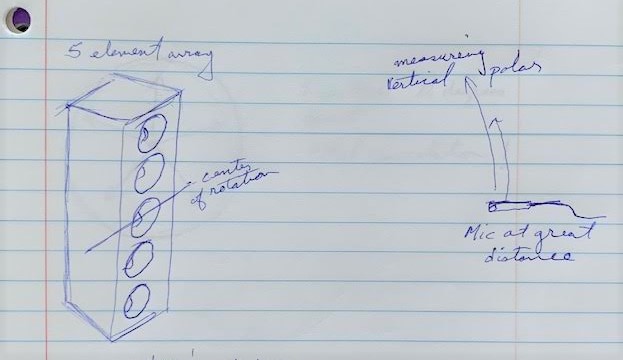 5 element array
measuring
Vertical polar
center
of rotation
Mic at great
distance